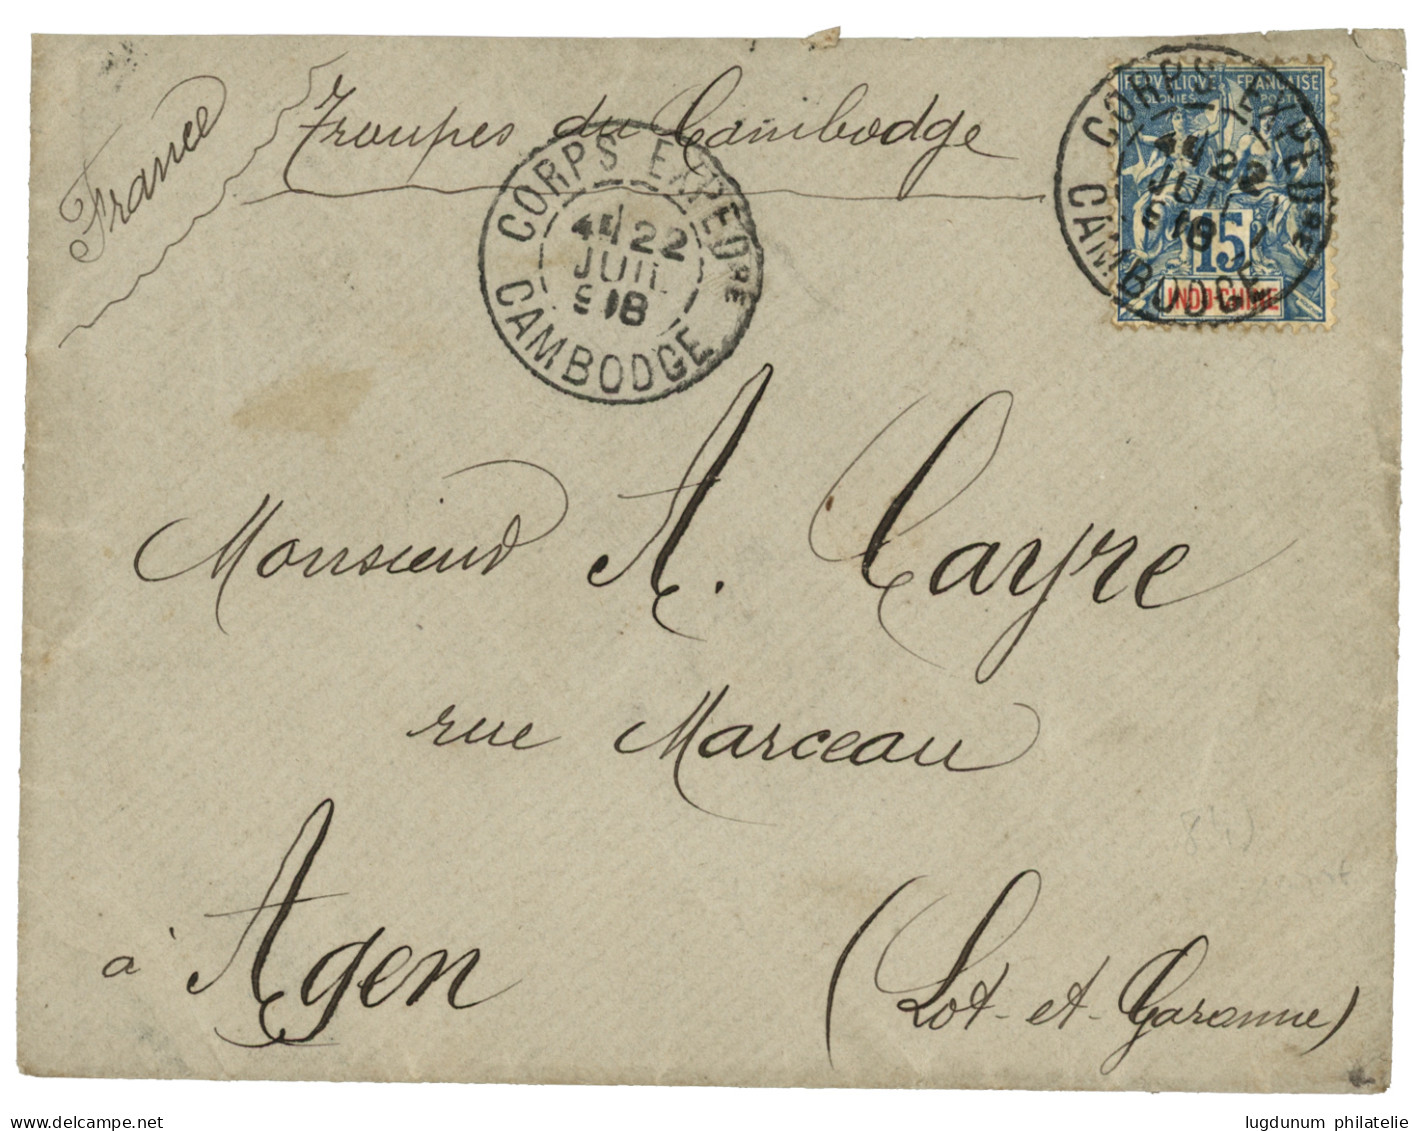 France
Troupes du Cambodge
CORPS EXPEDRE
22
JUIL
CAMBODGE
REPVBLIQUE FRANÇAISE
COLONIES POSTES
15
INDO-CHINE
CORPS EXPEDRE
22
JUIL
CAMBODGE
Monsieur A. Cayre
rue Marceau
à Agen
(Lot-et-Garonne)
delcampe.net
lugdunum philatelie